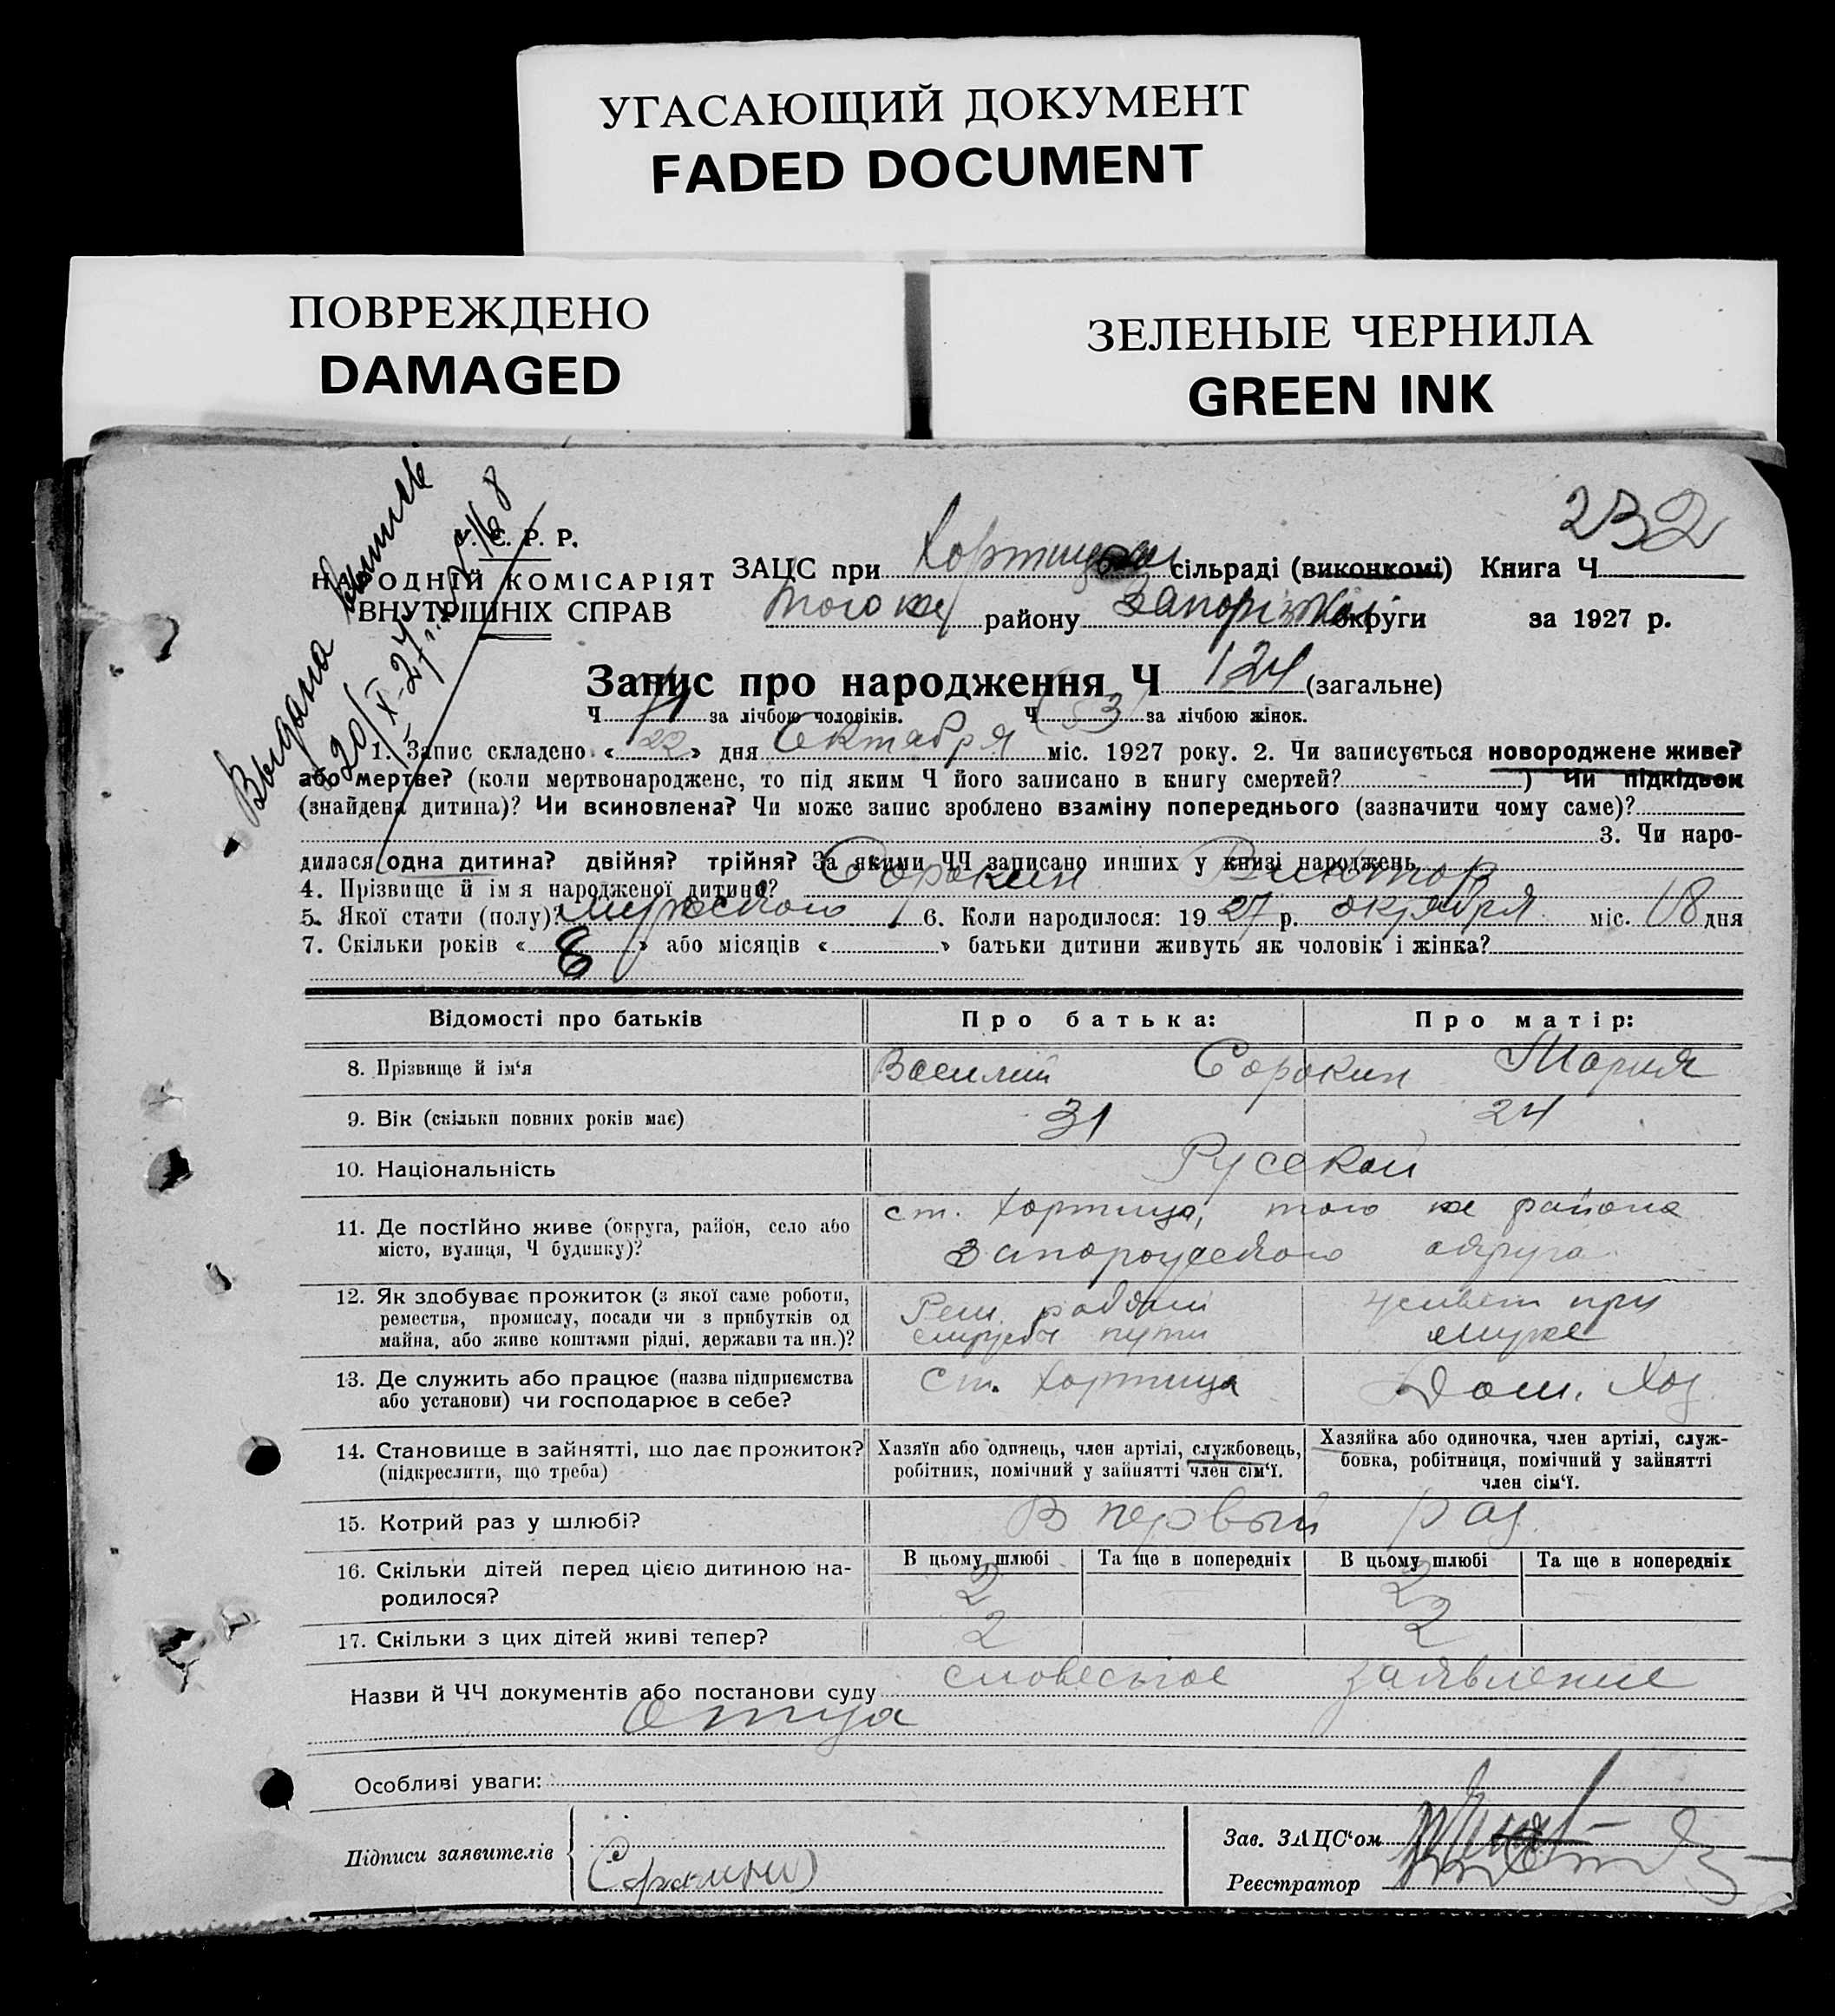 УГАСАЮЩИЙ ДОКУМЕНТ
FADED DOCUMENT
ПОВРЕЖДЕНО
DAMAGED
ЗЕЛЕНЫЕ ЧЕРНИЛА
GREEN INK
232
Выдана выпись
20/XI-27 г. № 1168
У. С. Р. Р.
НАРОДНІЙ КОМІСАРІЯТ
ВНУТРІШНІХ СПРАВ
ЗАЦС при Хортицком сільраді (виконкомі) Книга Ч
того же району Запорізької округи за 1927 р.
Запис про народження Ч 124 (загальне)
Ч 71 за лічбою чоловіків. Ч (53) за лічбою жінок.
1. Запис складено « 22 » дня Октября міс. 1927 року. 2. Чи записується новороджене живе?
або мертве? (коли мертвонароджене, то під яким Ч його записано в книгу смертей? ) Чи підкідьок
(знайдена дитина)? Чи всиновлена? Чи може запис зроблено взаміну попереднього (зазначити чому саме)?
3. Чи наро-
дилася одна дитина? двійня? трійня? За якими ЧЧ записано инших у книзі народжень
4. Прізвище й ім я народженої дитини? Сорокин Виктор
5. Якої стати (полу)? мужского 6. Коли народилося: 19 27 р. октября міс. 18 дня
7. Скільки років « 8 » або місяців « » батьки дитини живуть як чоловік і жінка?
Відомості про батьків Про батька: Про матір:
8. Прізвище й ім‘я Василий Сорокин Мария
9. Вік (скільки повних років має) 31 24
10. Національність Русской
11. Де постійно живе (округа, район, село або
місто, вулиця, Ч будинку)?
ст. Хортица, того же района
Запорожского округа
12. Як здобуває прожиток (з якої саме роботи,
ремества, промислу, посади чи з прибутків од
майна, або живе коштами рідні, держави та ин.)?
Рем. рабочий
службы пути
живет при
муже
13. Де служить або працює (назва підприємства
або установи) чи господарює в себе?
ст. Хортица
Дом. Хоз
14. Становище в зайнятті, що дає прожиток?
(підкреслити, що треба)
Хазяїн або одинець, член артілі, службовець,
робітник, помічний у зайнятті член сім‘ї.
Хазяйка або одиночка, член артілі, служ-
бовка, робітниця, помічний у зайнятті
член сім‘ї.
15. Котрий раз у шлюбі? В первый раз
16. Скільки дітей перед цією дитиною на-
родилося?
В цьому шлюбі Та ще в попередніх В цьому шлюбі Та ще в попередніх
2 2
17. Скільки з цих дітей живі тепер? 2 2
Назви й ЧЧ документів або постанови суду словесное заявление
отца
Особливі уваги:
Підписи заявителів
(Сорокин)
Зав. ЗАЦС‘ом
Реєстратор